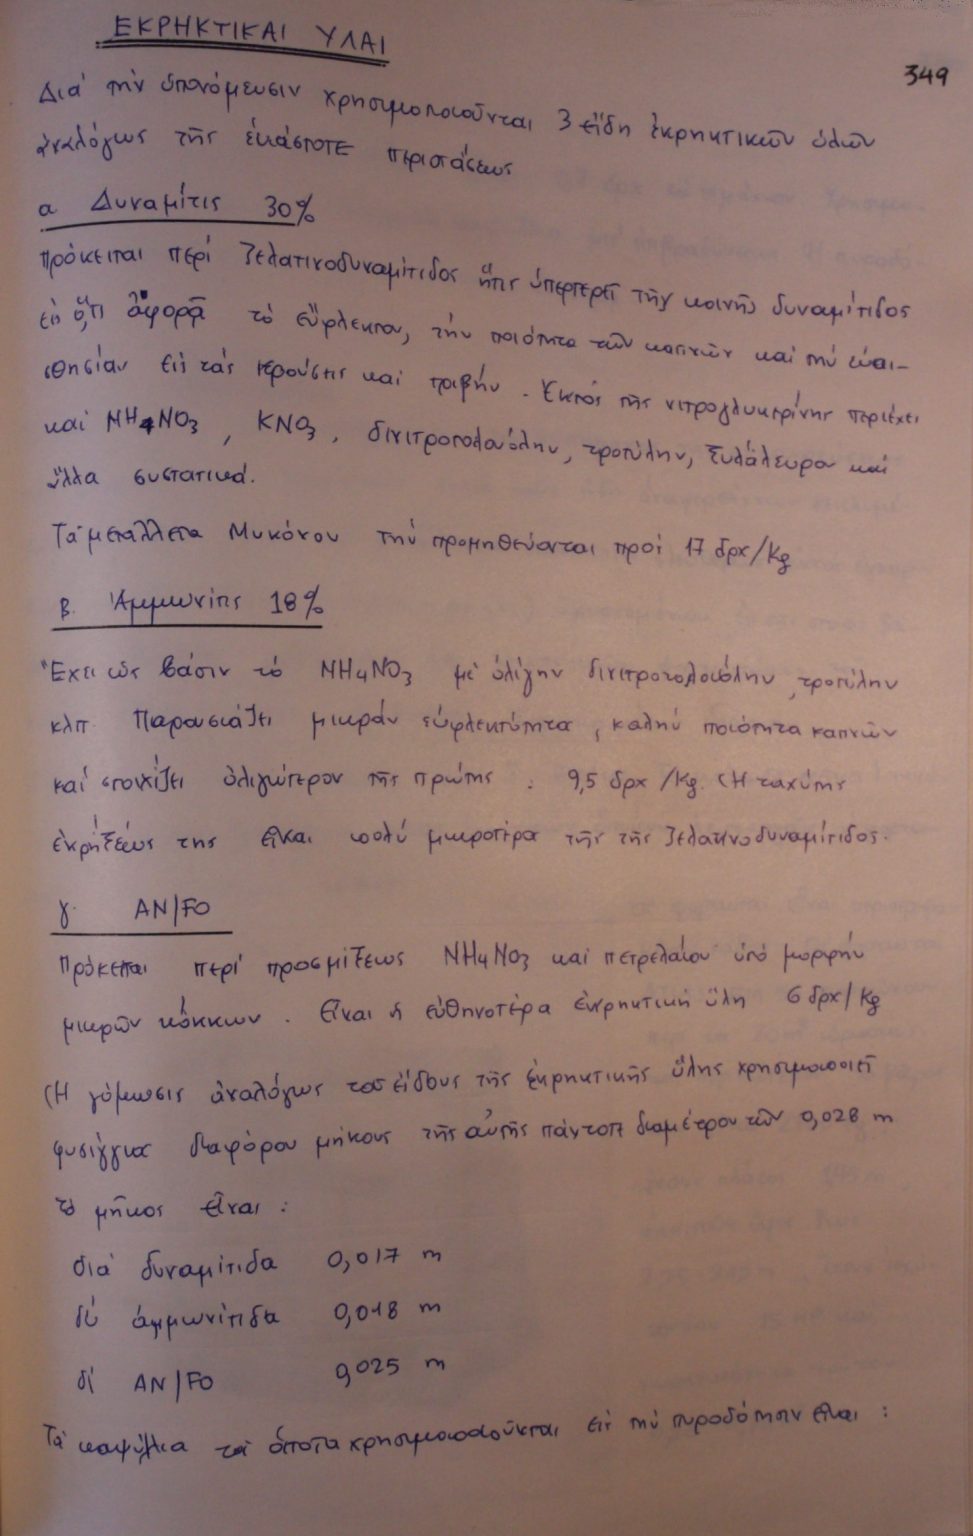 ΕΚΡΗΚΤΙΚΑΙ ΥΛΑΙ
349
Διά τήν ὑπονόμευσιν χρησιμοποιοῦνται 3 εἴδη ἐκρηκτικῶν ὑλῶν
ἀναλόγως τῆς ἑκάστοτε περιστάσεως
α Δυναμίτις 30%
Πρόκειται περί ζελατινοδυναμίτιδος ἥτις ὑπερτερεῖ τῆς κοινῆς δυναμίτιδος
εἰς ὅ,τι ἀφορᾷ τό εὔφλεκτον, τήν ποιότητα τῶν καπνῶν καί τήν εὐαι-
σθησίαν εἰς τάς κρούσεις καί τριβήν. Ἐκτός τῆς νιτρογλυκερίνης περιέχει
καί NH4NO3, KNO3, δινιτροτολουόλην, τροτύλην, ξυλάλευρον καί
ἄλλα συστατικά.
Τά μεταλλεῖα Μυκόνου τήν προμηθεύονται πρός 17 δρχ/Kg
β. Ἀμμωνίτις 18%
Ἔχει ὡς βάσιν τό NH4NO3 μέ ὀλίγην δινιτροτολουόλην, τροτύλην
κλπ. Παρουσιάζει μικράν εὐφλεκτότητα, καλήν ποιότητα καπνῶν
καί στοιχίζει ὀλιγώτερον τῆς πρώτης. 9,5 δρχ/Kg. (Ἡ ταχύτης
ἐκρήξεώς της εἶναι πολύ μικροτέρα τῆς τῆς ζελατινοδυναμίτιδος.
γ. AN/FO
Πρόκειται περί προσμίξεως NH4NO3 καί πετρελαίου ὑπό μορφήν
μικρῶν κόκκων. Εἶναι ἡ εὐθηνοτέρα ἐκρηκτική ὕλη 6 δρχ/Kg
(Ἡ γόμωσις ἀναλόγως τοῦ εἴδους τῆς ἐκρηκτικῆς ὕλης χρησιμοποιεῖ
φυσίγγια διαφόρου μήκους τῆς αὐτῆς πάντοτε διαμέτρου τῶν 0,028 m
τό μῆκος εἶναι :
διά δυναμίτιδα 0,017 m
δι' ἀμμωνίτιδα 0,018 m
δι' AN/FO 0,025 m
Τά καψύλλια τά ὁποῖα χρησιμοποιοῦνται εἰς τήν πυροδότησιν εἶναι :